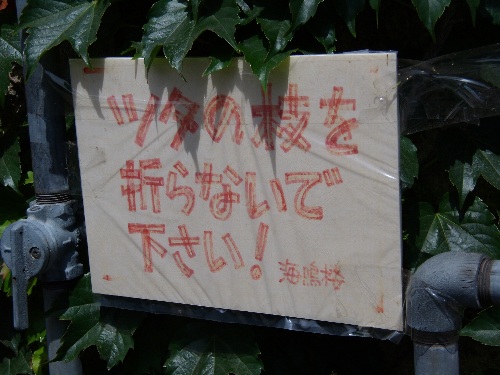 ツタの枝を
折らないで
下さい!